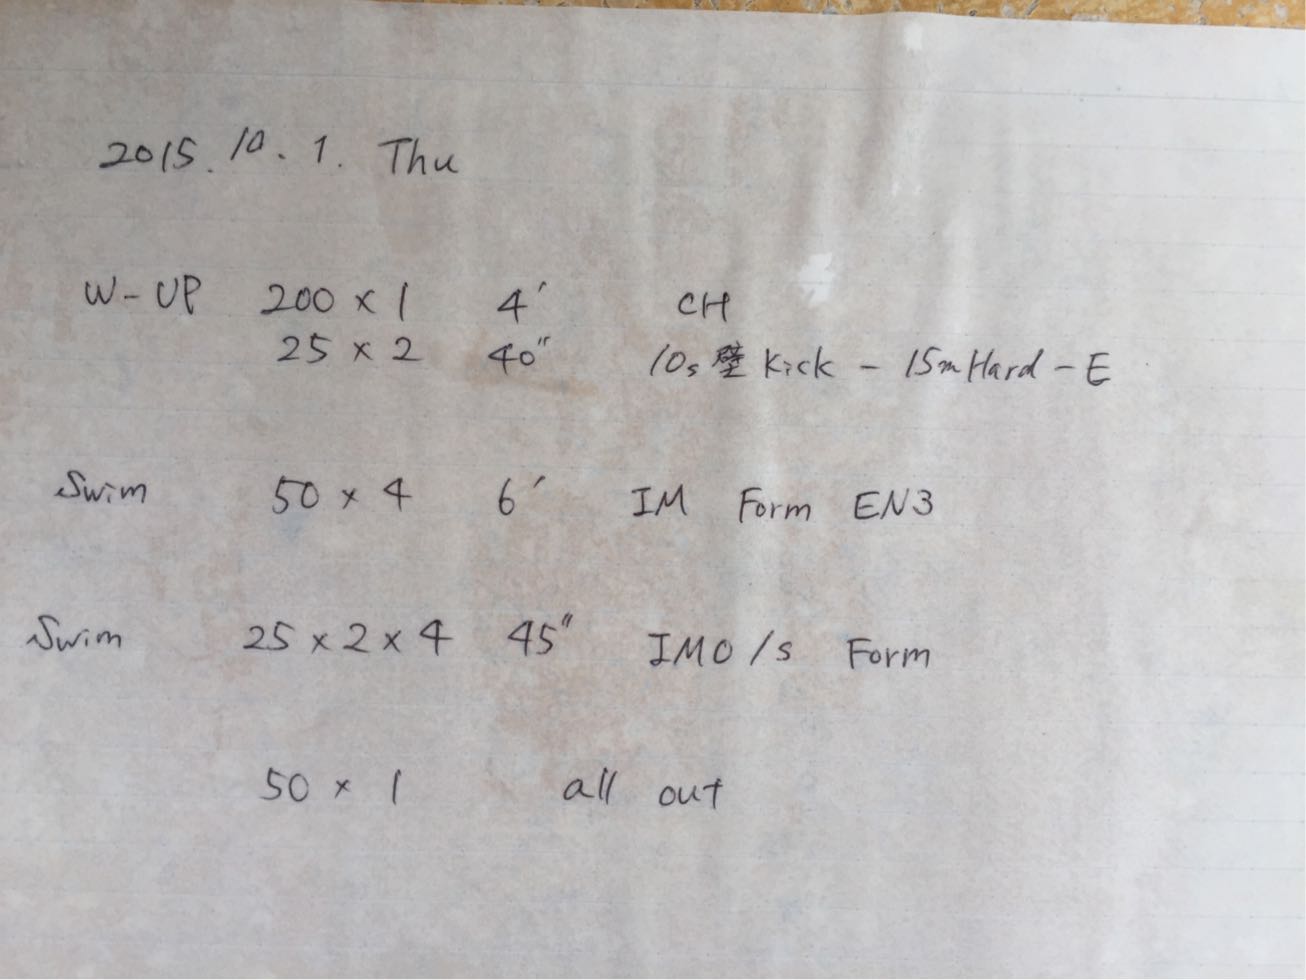 2015.10.1. Thu
W-UP 200×1 4' CH
25×2 40" 10s壁kick-15mHard-E
Swim 50×4 6' IM Form EN3
Swim 25×2×4 45" IMO/s Form
50×1 all out